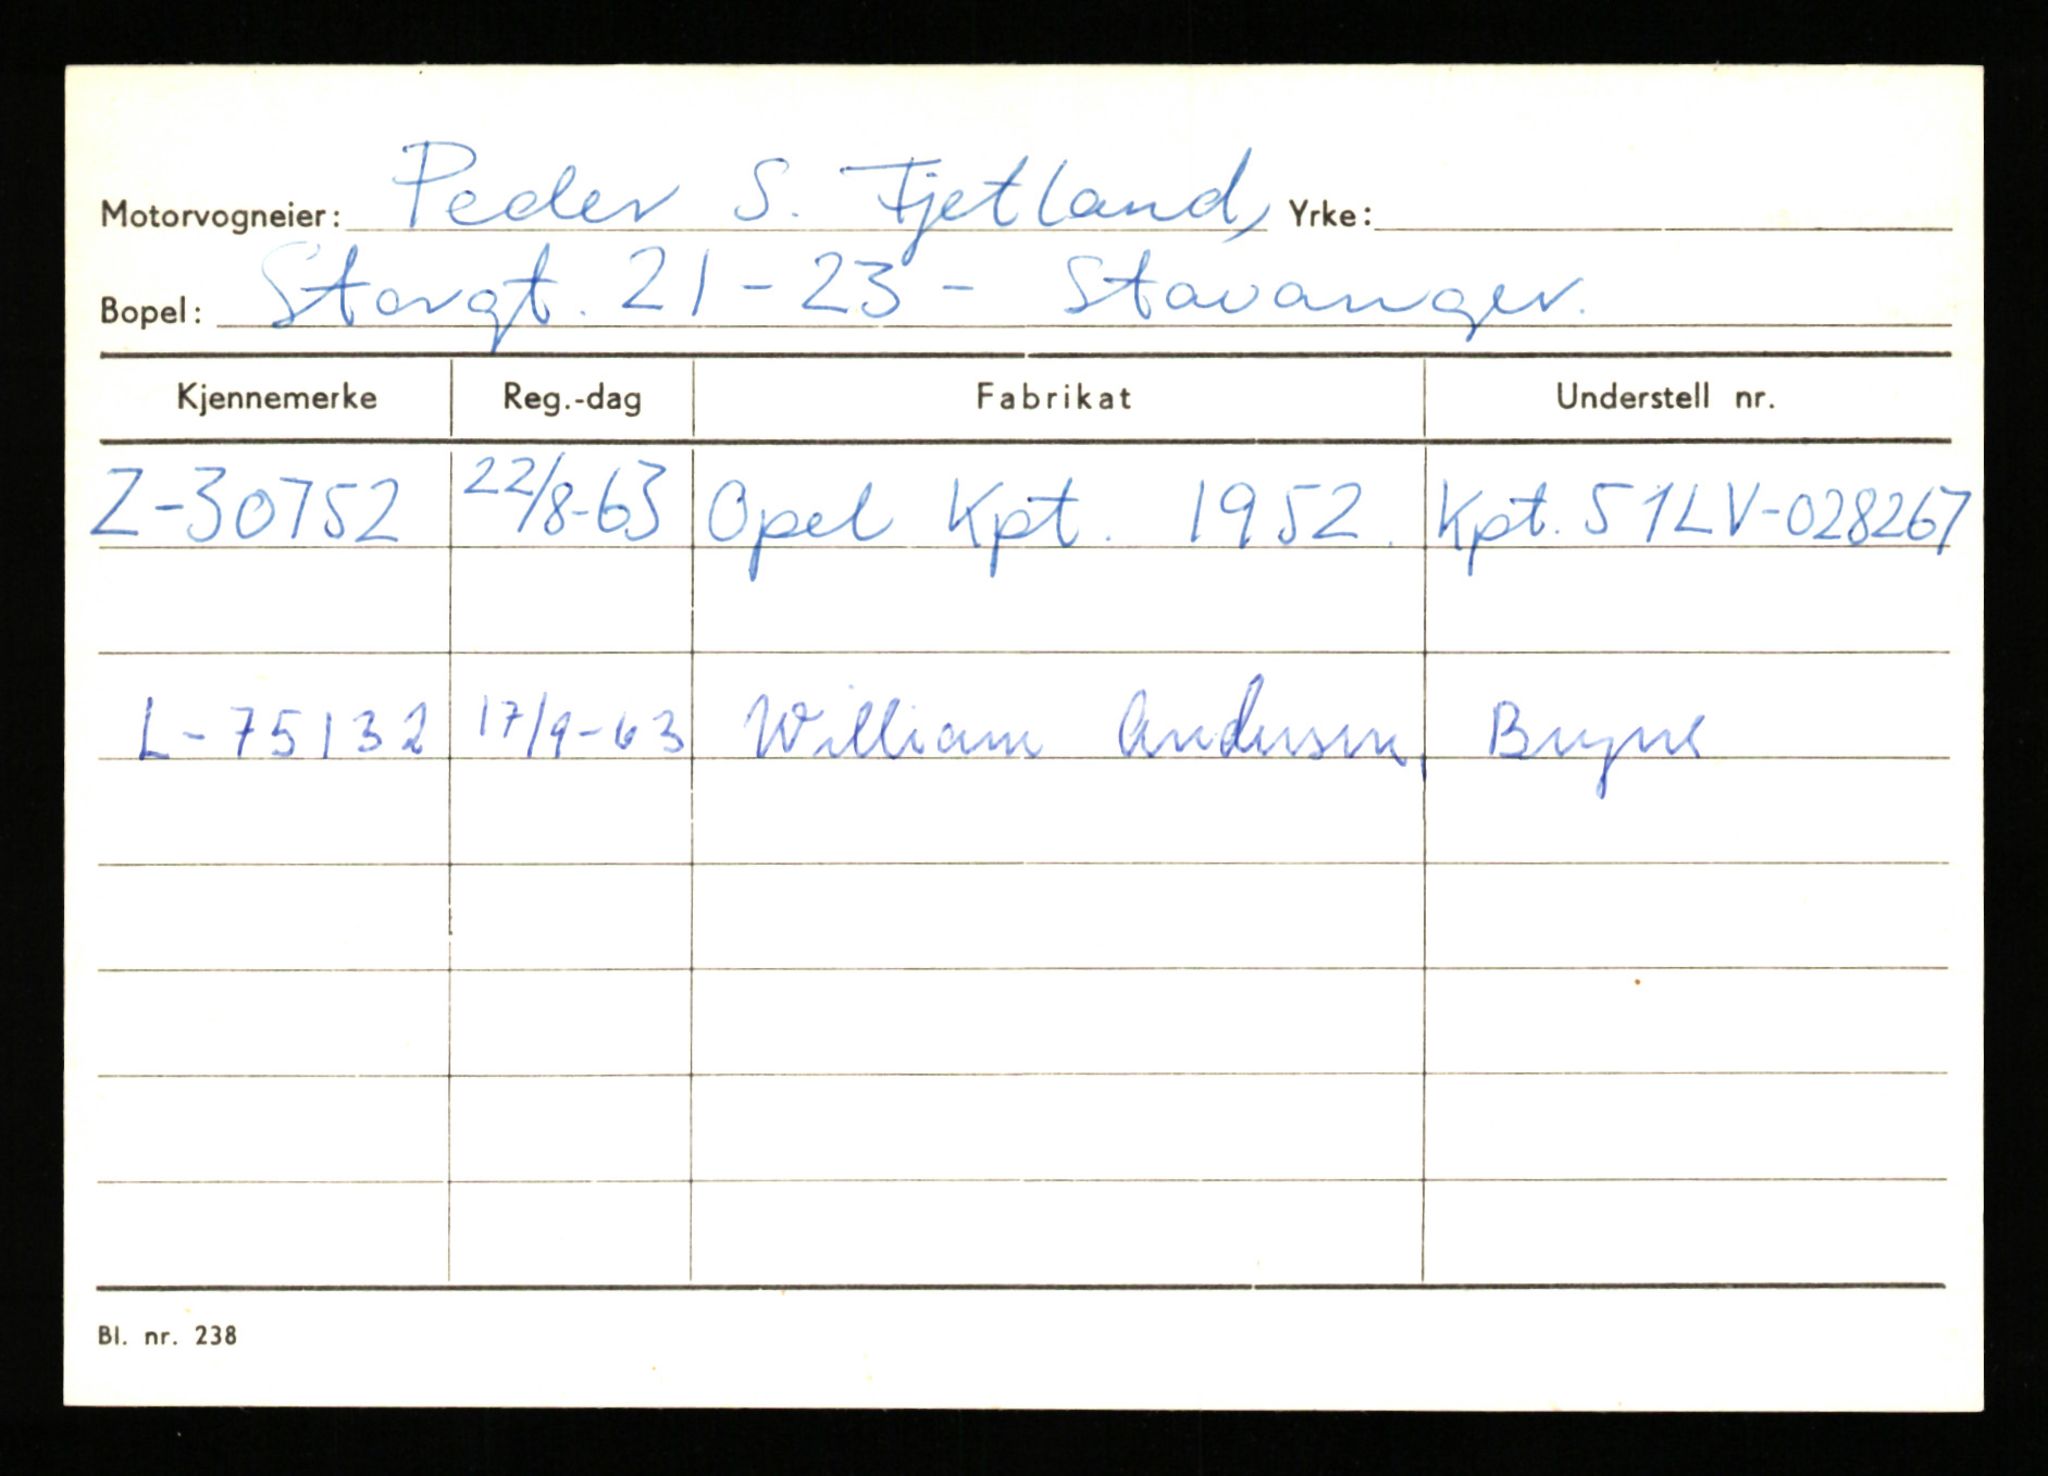 Motorvogneier: Peder S. Fjetland, Yrke:
Bopel: Storgt. 21 - 23 - Stavanger.
Kjennemerke Reg.-dag Fabrikat Understell nr.
Z-30752 22/8-63 Opel Kpt. 1952. Kpt. 51LV-028267
L-75132 17/9-63 William Andersen, Bryne
Bl. nr. 238